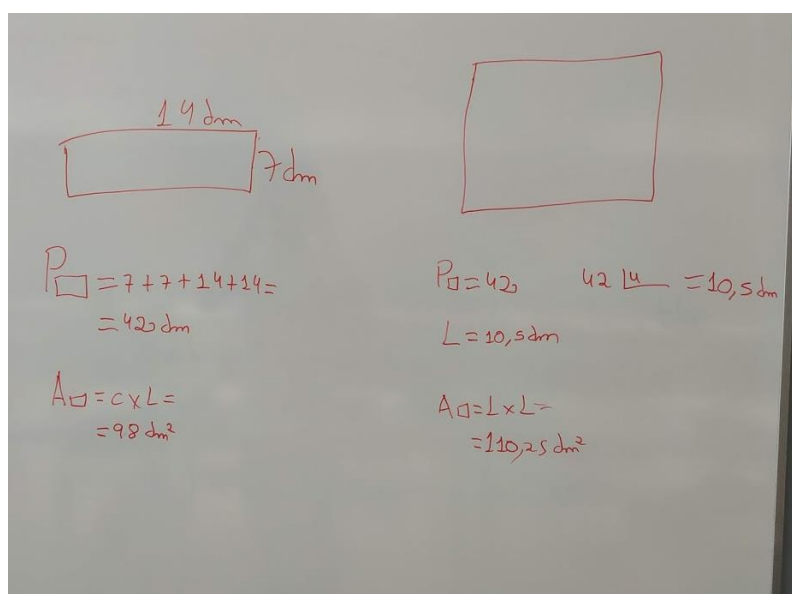 14 dm
7 dm
P▭ = 7 + 7 + 14 + 14 =
= 42 dm
A▭ = C x L =
= 98 dm²
P□ = 42
42 4 = 10,5 dm
L = 10,5 dm
A□ = L x L =
= 110,25 dm²